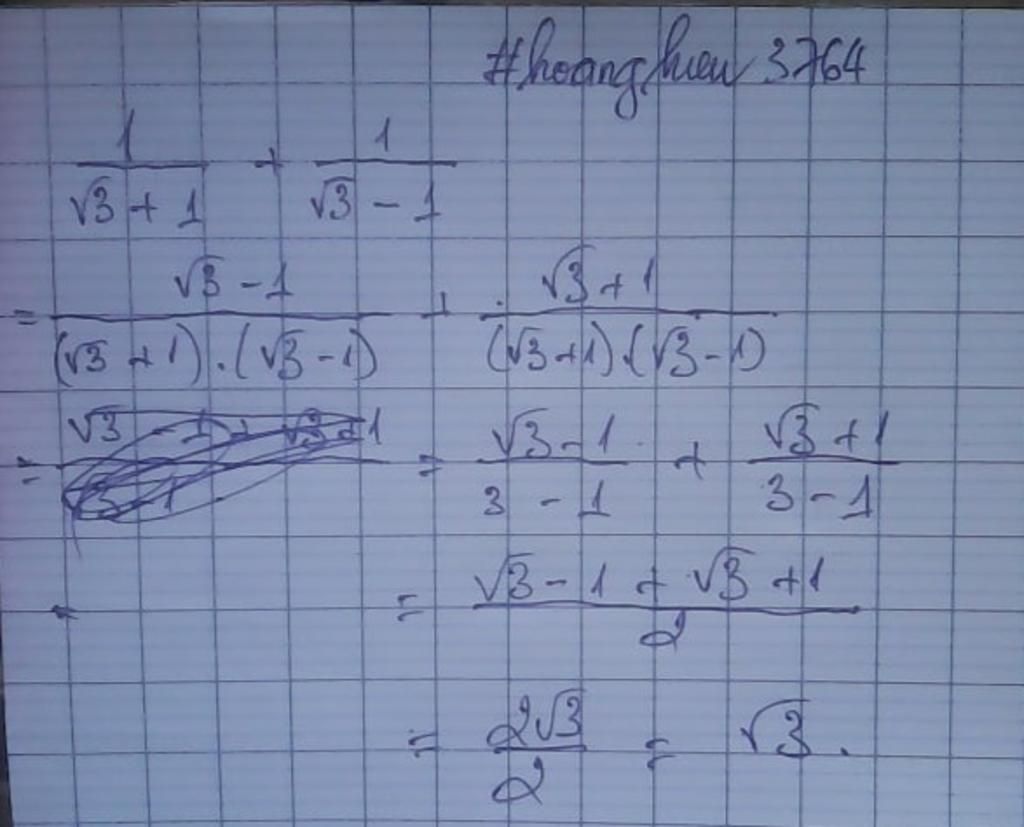 #hoanghieu3764
1/(√3 + 1) + 1/(√3 - 1)
= (√3 - 1)/((√3 + 1).(√3 - 1)) + (√3 + 1)/((√3 + 1).(√3 - 1))
= (√3 - 1 + √3 + 1)/(3 - 1) = (√3 - 1)/(3 - 1) + (√3 + 1)/(3 - 1)
= (√3 - 1 + √3 + 1)/2
= 2√3/2 = √3.